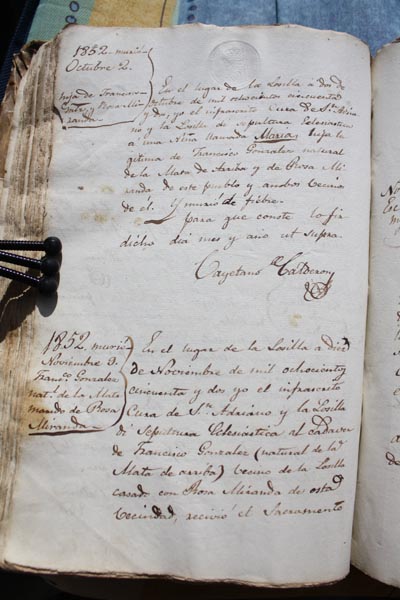 1852. murió
Octubre 2.
hija de Francisco
Gonz. y Rosa Mi-
randa.
En el lugar de la Losilla a dos de
Octubre de mil ochocientos cincuenta
y dos yo el infrascrito Cura de Sn. Adria
no y la Losilla di sepultura Eclesiastica
a una Niña llamada Maria, hija le
gitima de Francisco Gonzalez natural
de la Mata de Arriba y de Rosa Mi
randa de este pueblo y ambos Vecinos
de él. Y murió de fiebre.
Para que conste lo fir
dicho dia mes y año ut supra.
Cayetano Calderon
1852. murió
Noviembre 9.
Franco. Gonzalez
natl. de la Mata
marido de Rosa
Miranda
En el lugar de la Losilla a diez
de Noviembre de mil ochocientos
cincuenta y dos yo el infrascrito
Cura de Sn. Adriano y la Losilla
di Sepultura Eclesiástica al Cadaver
de Francisco Gonzalez (natural de la
Mata de arriba) Vecino de la Losilla
casado con Rosa Miranda de esta
Vecindad, recivió el Sacramento